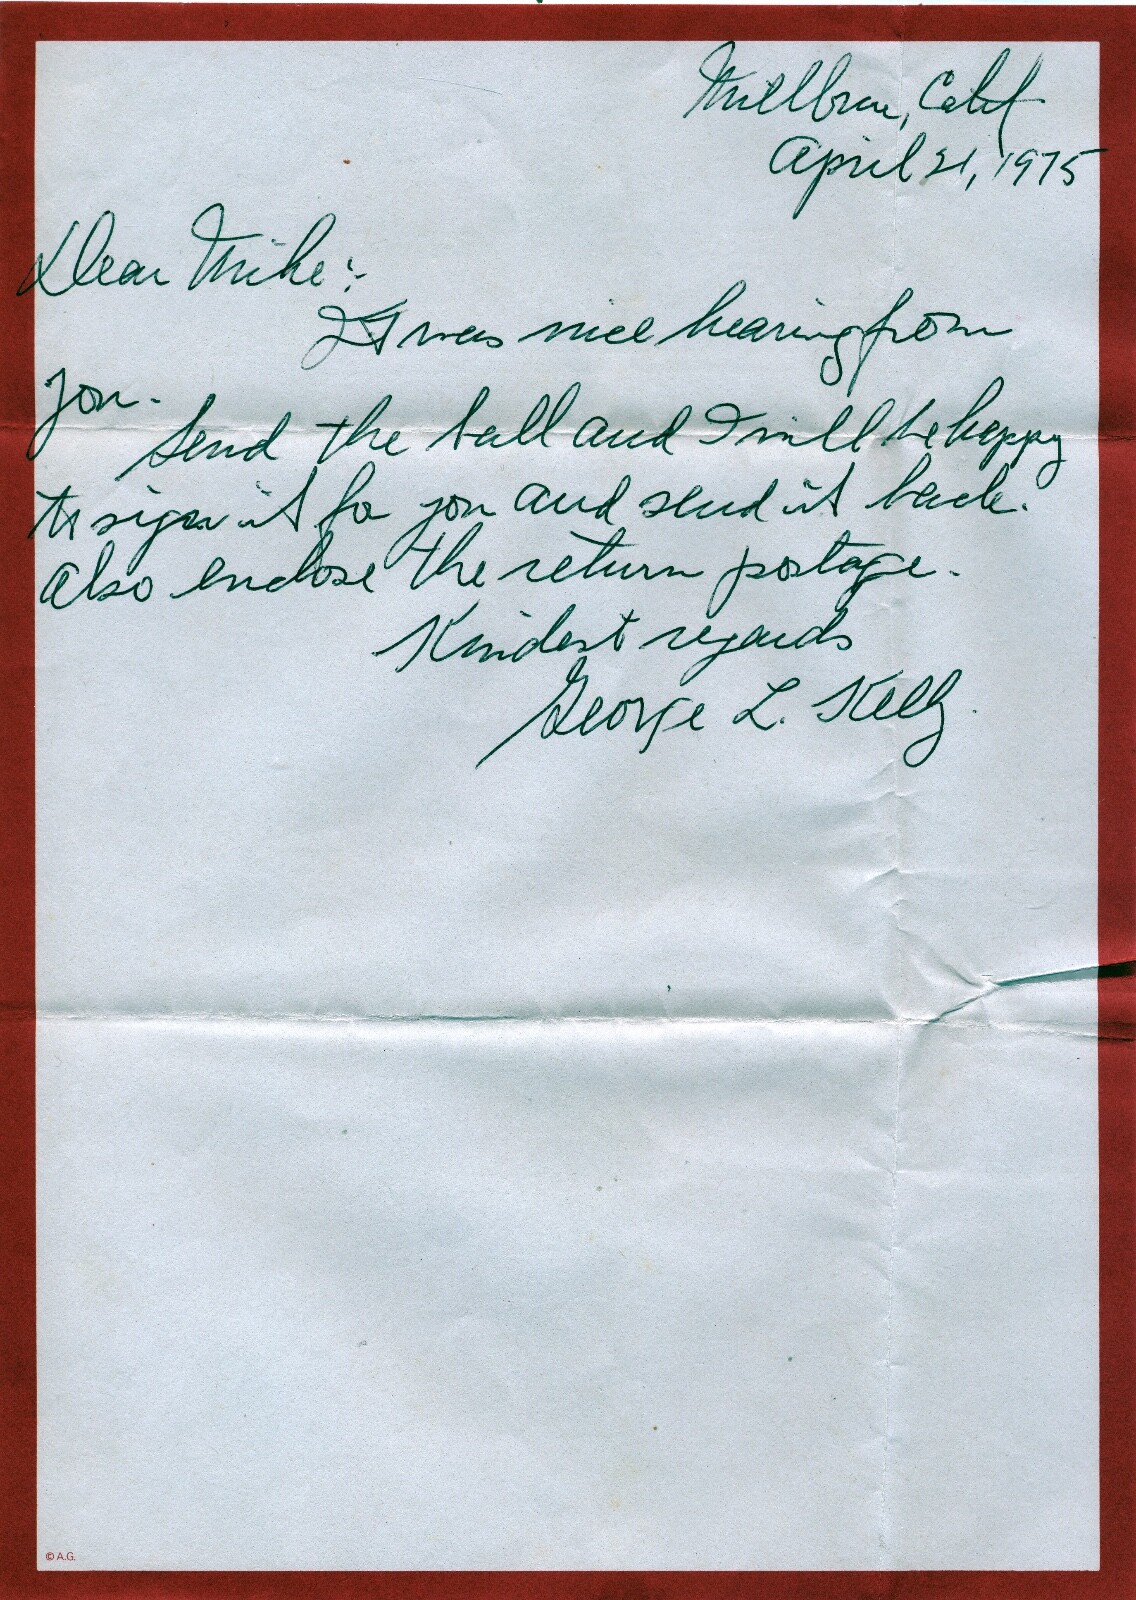 Millbrae, Calif
April 21, 1975
Dear Mike:-
It was nice hearing from
you.
Send the ball and I will be happy
to sign it for you and send it back.
Also enclose the return postage.
Kindest regards
George L. Kelly.
© A.G.